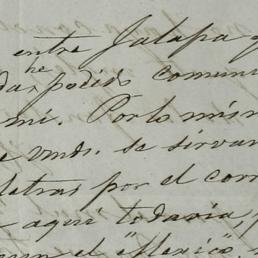 entre Jalapa
he
podido comuni
mi. Por lo mism
vmds. se sirvan
letras por el corr
aqui todavia,
el "Mexico"